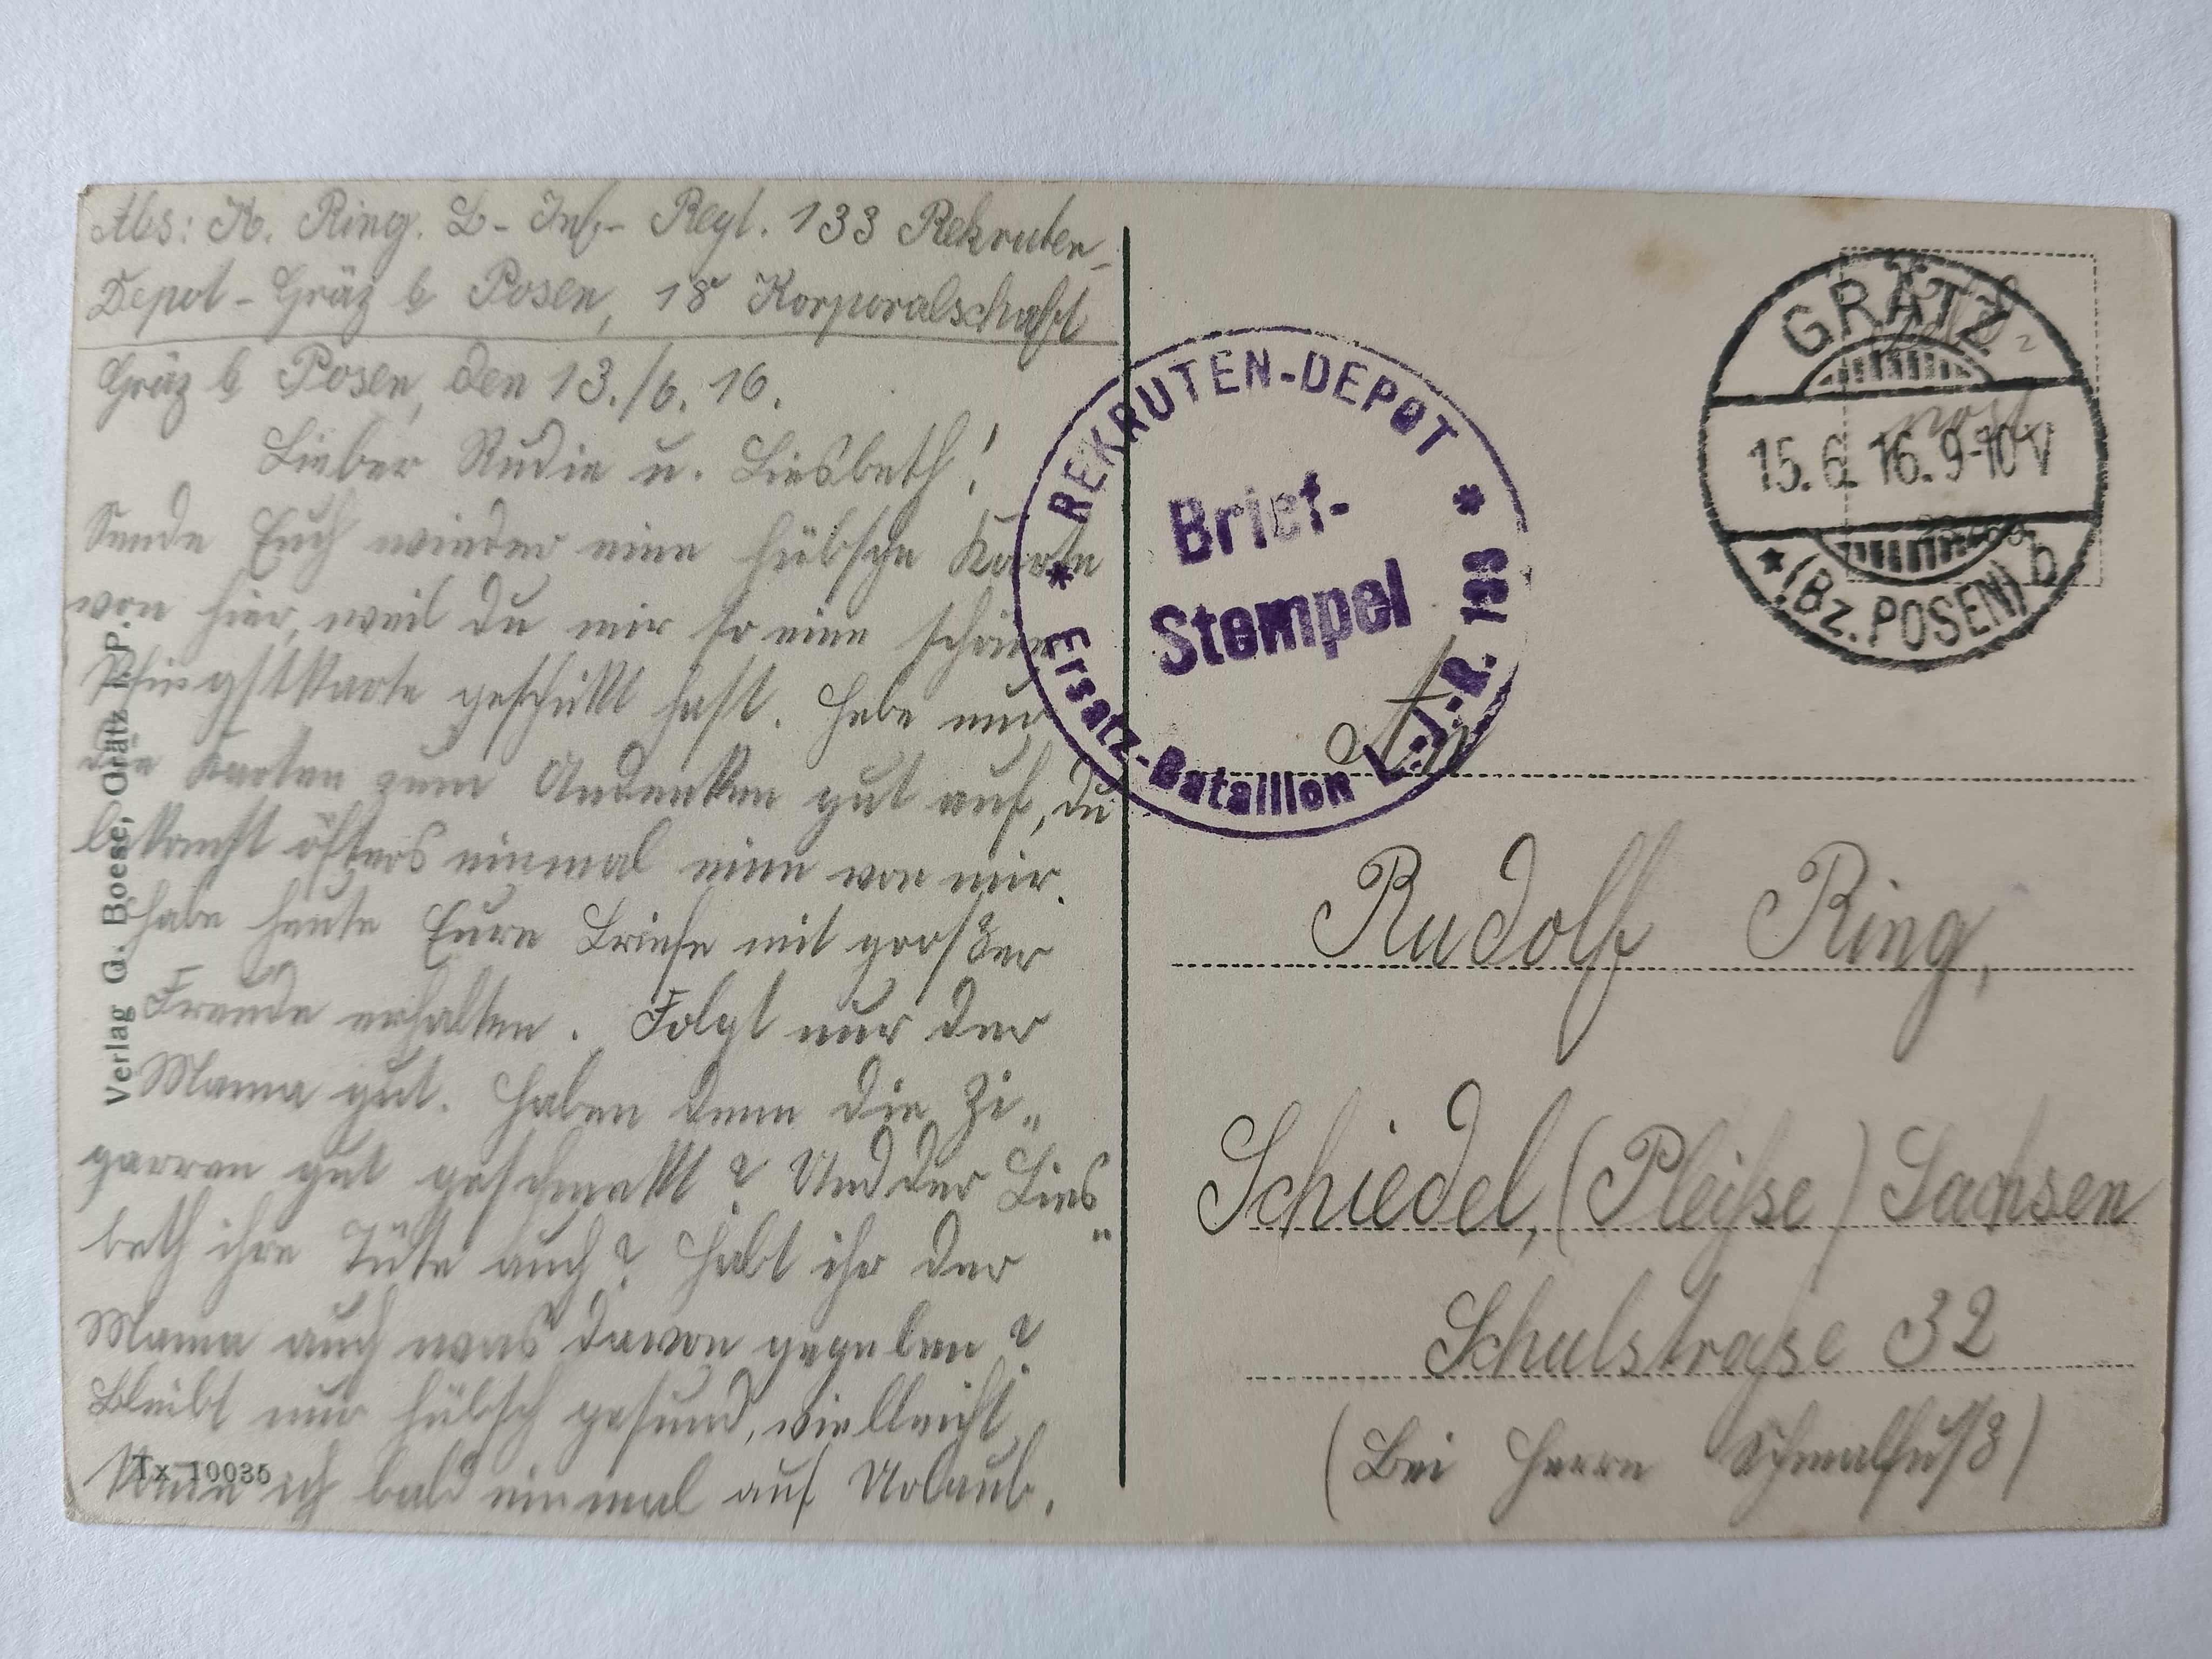 Abs: K. Ring. L-Inf.-Regt. 133 Rekruten-
Depot-Gräz b Posen, 18 Korporalschaft
Gräz b Posen, den 13./6.16.
Lieber Rudie u. Liesbeth!
Sende Euch wieder eine hübsche Karte
von hier, weil du mir so eine schöne
Pfingstkarte geschikt hast. Hebe nur
die Karten zum Andenken gut auf, du
bekomst öfters einmal eine von mir.
Habe heute Eure Briefe mit großer
Freude erhalten. Folgt nur der
Mama gut. Haben denn die Zi„
garren gut geschmekt? Und der Lies„
beth ihre Tüte auch? Habt ihr der
Mama auch was davon gegeben?
Bleibt nur hübsch gesund, vielleicht
kom ich bald einmal auf Urlaub.
Verlag G. Boese, Grätz i. P.
Tx 10035
* REKRUTEN-DEPOT *
Brief-
Stempel
Ersatz-Bataillon L.-J.-R. 133
GRÄTZ
15.6.16.9-10V
* (Bz. POSEN) b
Feld
post
An
Rudolf Ring,
Schiedel, (Pleiße) Sachsen
Schulstraße 32
(Bei Herrn Schmalfuß)